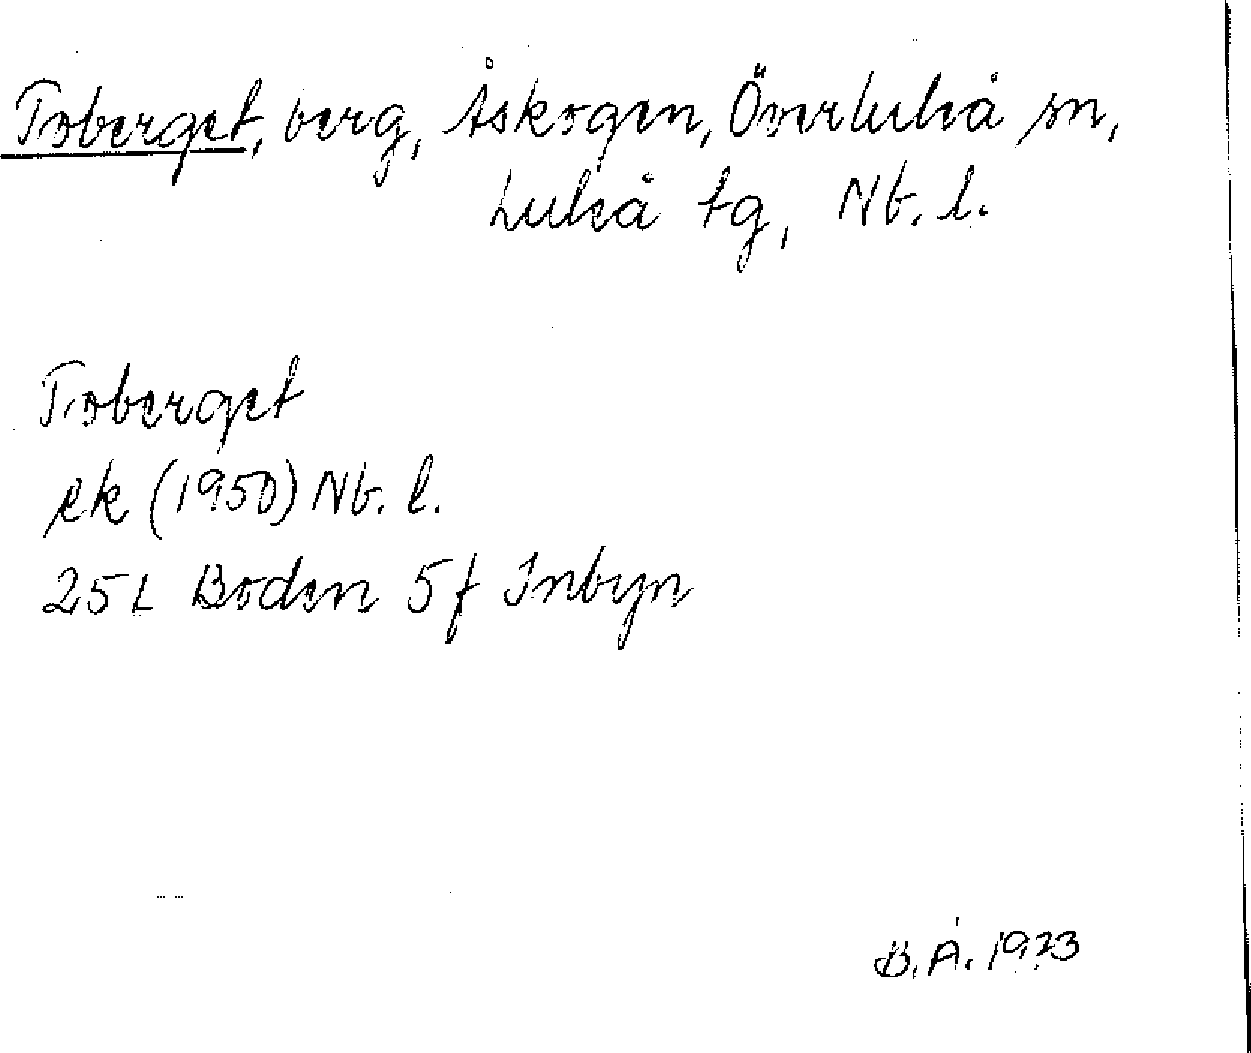 Toberget, berg, Åskogen, Överluleå sn,
Luleå tg, Nb. l.
Toberget
ek (1950) Nb. l.
25 L Boden 5 f Inbyn
B.Å. 1973